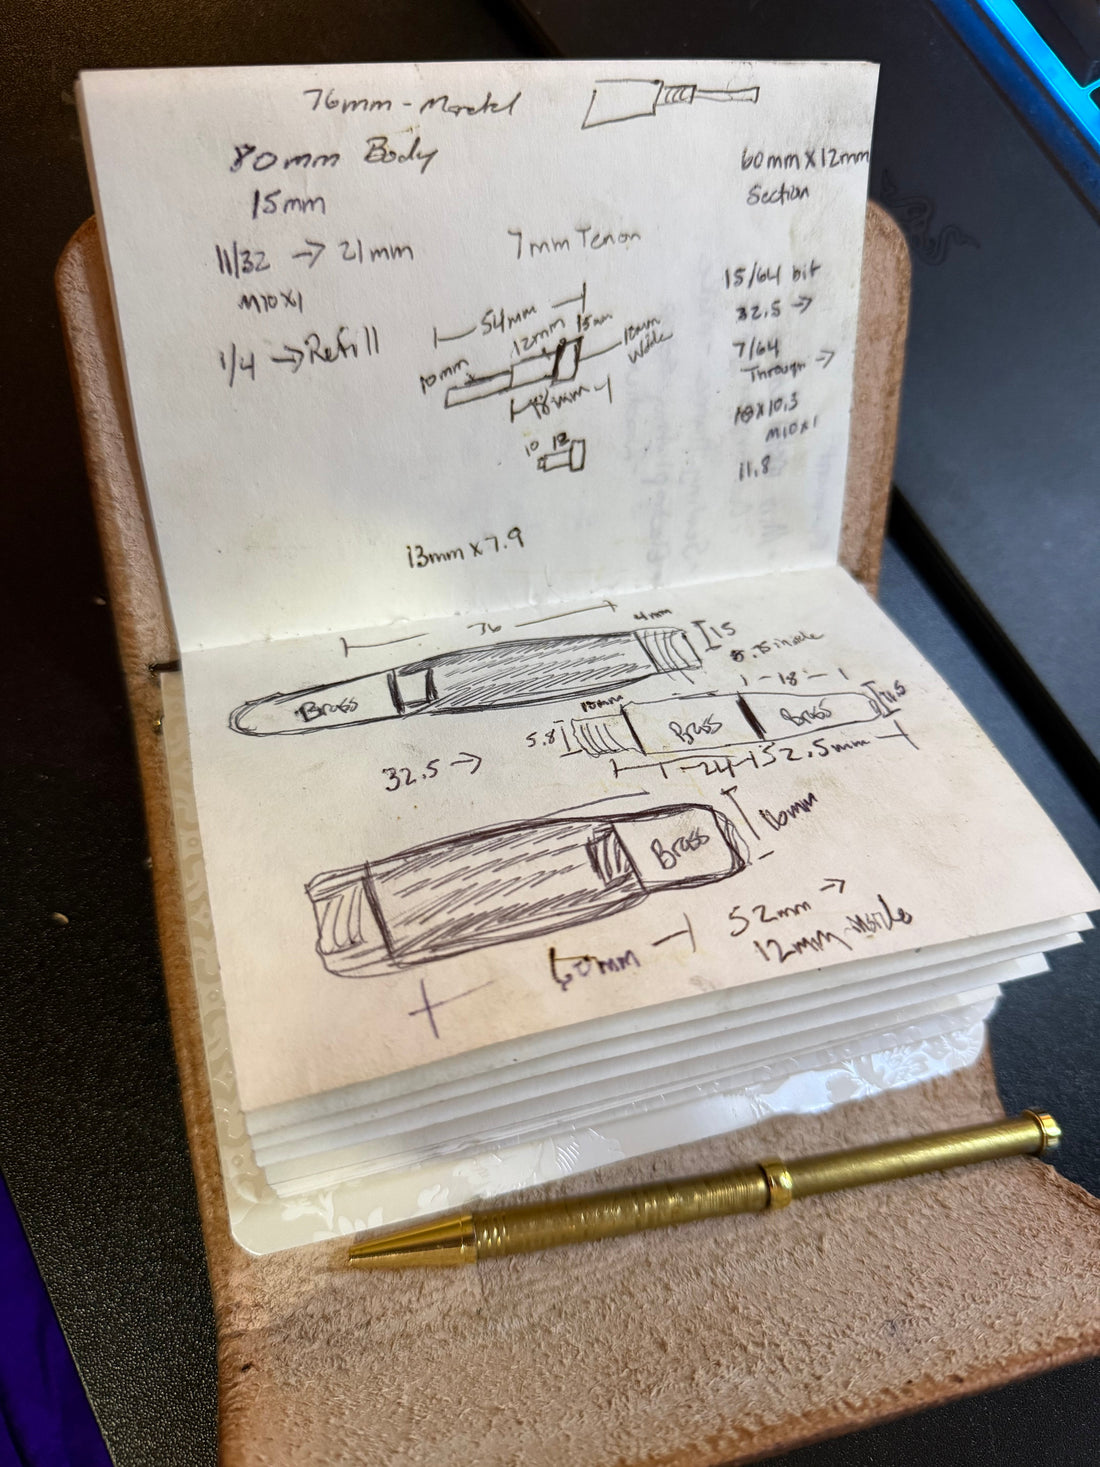 76mm -
80mm Body
15mm
11/32 → 21mm
M10x1
1/4 → Refill
60mm x 12mm
Section
7mm Tenon
15/64 bit
32.5 →
7/64
Through →
M10x1
11.8
54mm
12mm
15mm
10mm
12mm
Wide
18mm
10 12
13mm x 7.9
76
4mm
15
inside
Brass
18
10mm
5.8
Brass
Brass
24
52.5mm
32.5 →
16mm
Brass
60mm
52mm →
12mm inside